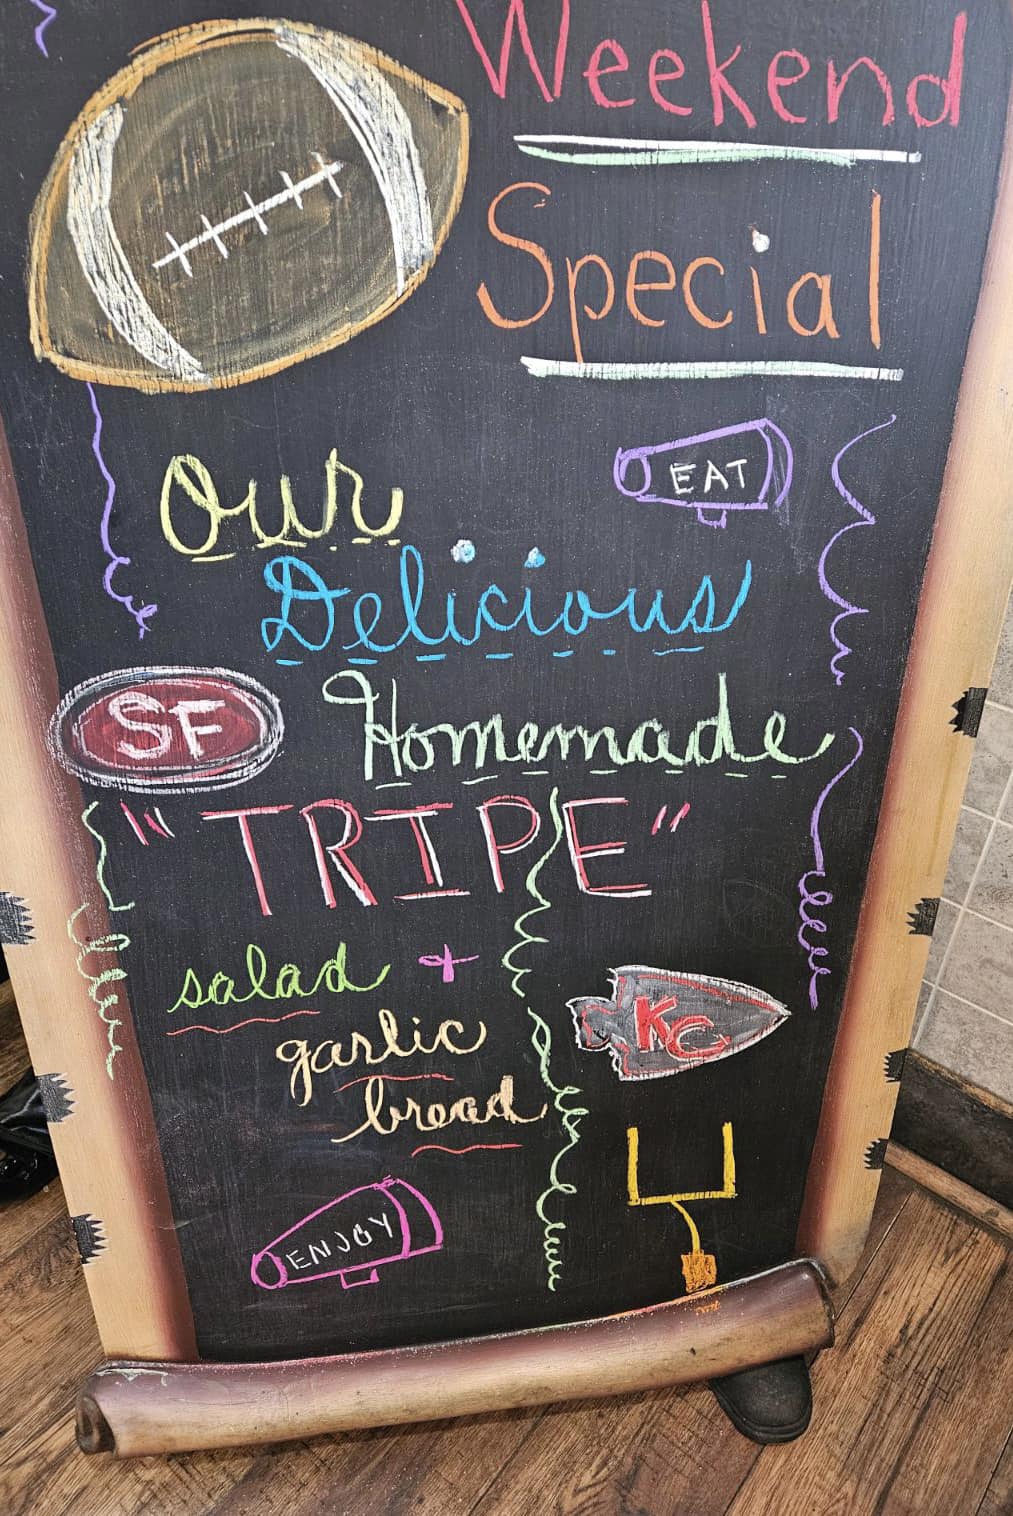 Weekend
Special
EAT
Our
Delicious
SF
Homemade
"TRIPE"
salad +
garlic
bread
KC
ENJOY